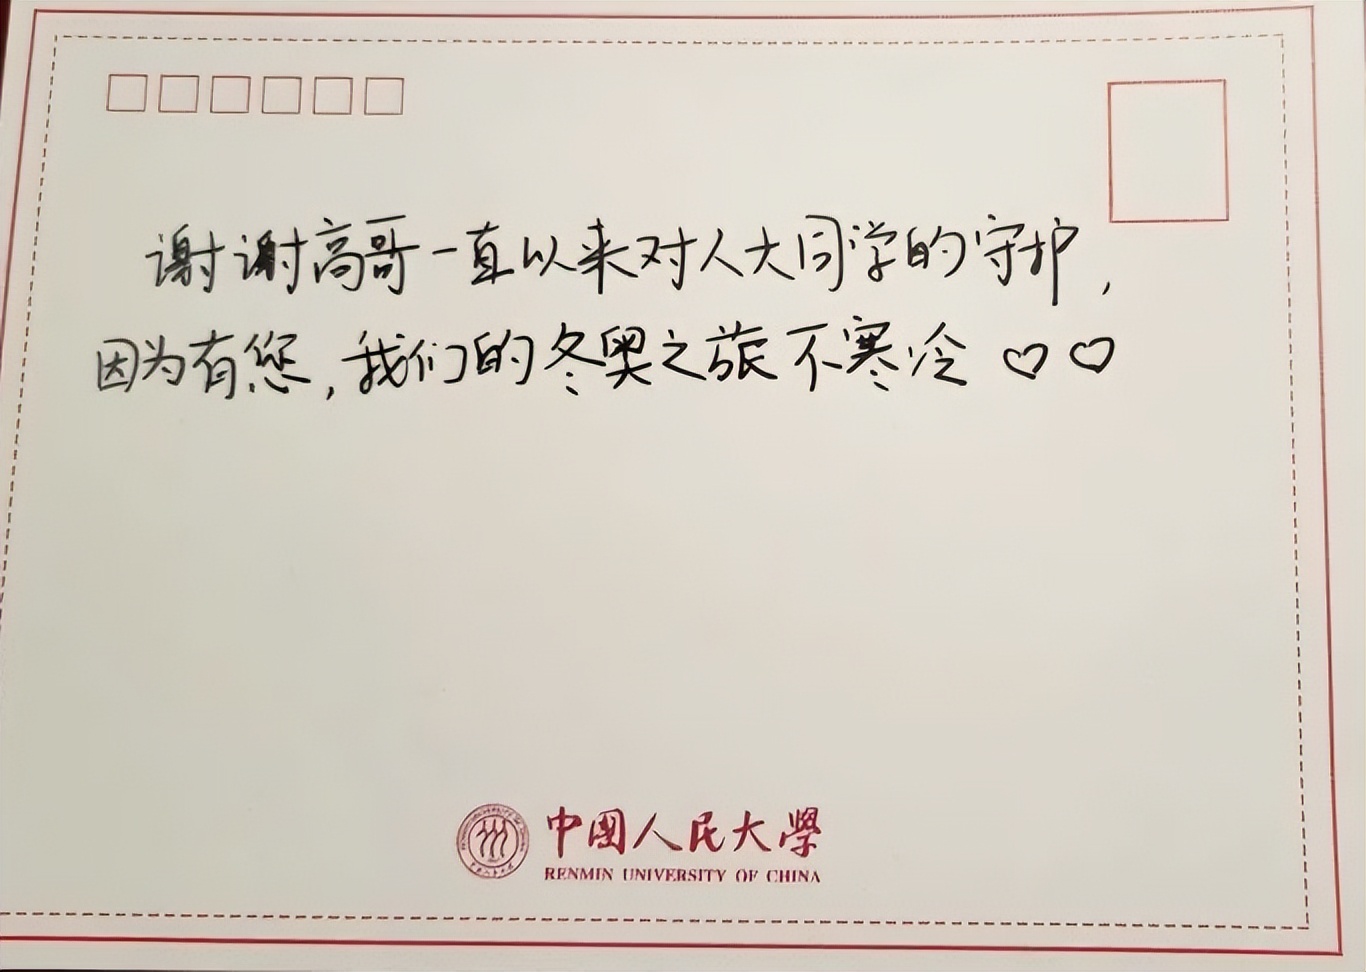 谢谢高哥一直以来对人大同学的守护，
因为有您，我们的冬奥之旅不寒冷 ♡♡
中国人民大學
RENMIN UNIVERSITY OF CHINA